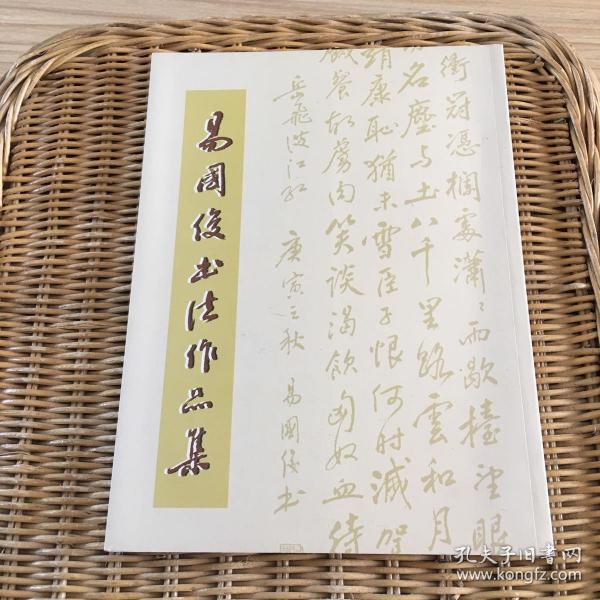 易國俊书法作品集
衝冠憑欄處瀟瀟而歇抬望眼
名塵与土八千里路雲和月
靖康恥猶未雪臣子恨何时滅駕
飢餐胡虜肉笑談渴飲匈奴血待
岳飛滿江红 庚寅之秋 易國俊书
孔夫子旧书网
www.kongfz.com